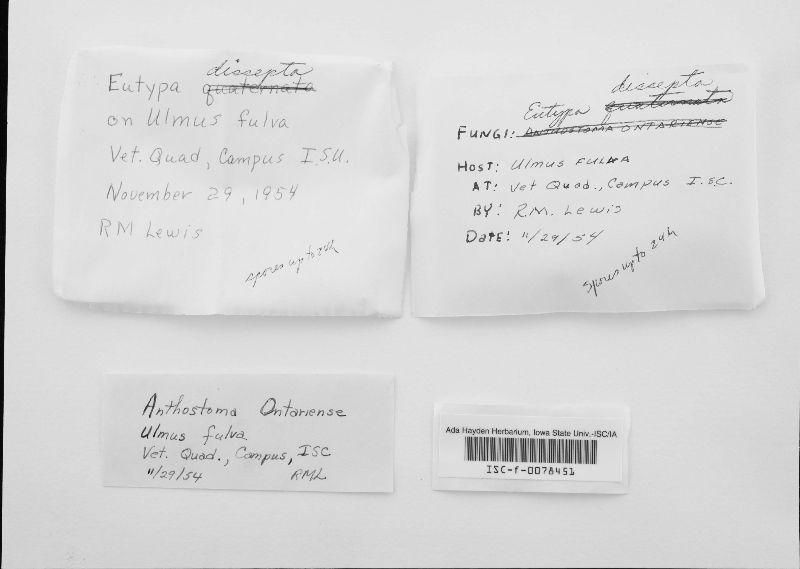 dissepta
Eutypa quaternata
on Ulmus fulva
Vet. Quad, Campus I.S.U.
November 29, 1954
RM Lewis
spores up to 24µ
dissepta
Eutypa quaternata
FUNGI: ANTHOSTOMA ONTARIENSE
HOST: ULMUS FULVA
AT: Vet Quad., Campus I.S.C.
BY: R.M. Lewis
DATE: 11/29/54
spores up to 24µ
Anthostoma Ontariense
Ulmus fulva
Vet. Quad., Campus, ISC
11/29/54 RML
Ada Hayden Herbarium, Iowa State Univ.-ISC/IA
ISC-f-0078451